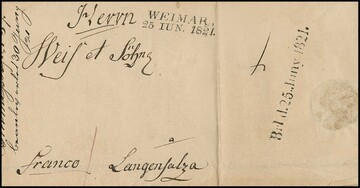 Herrn
WEIMAR.
25 IUN. 1821.
Weiß et Söhne
B.d.d. 25. Juny 1821.
a
Franco Langensalza